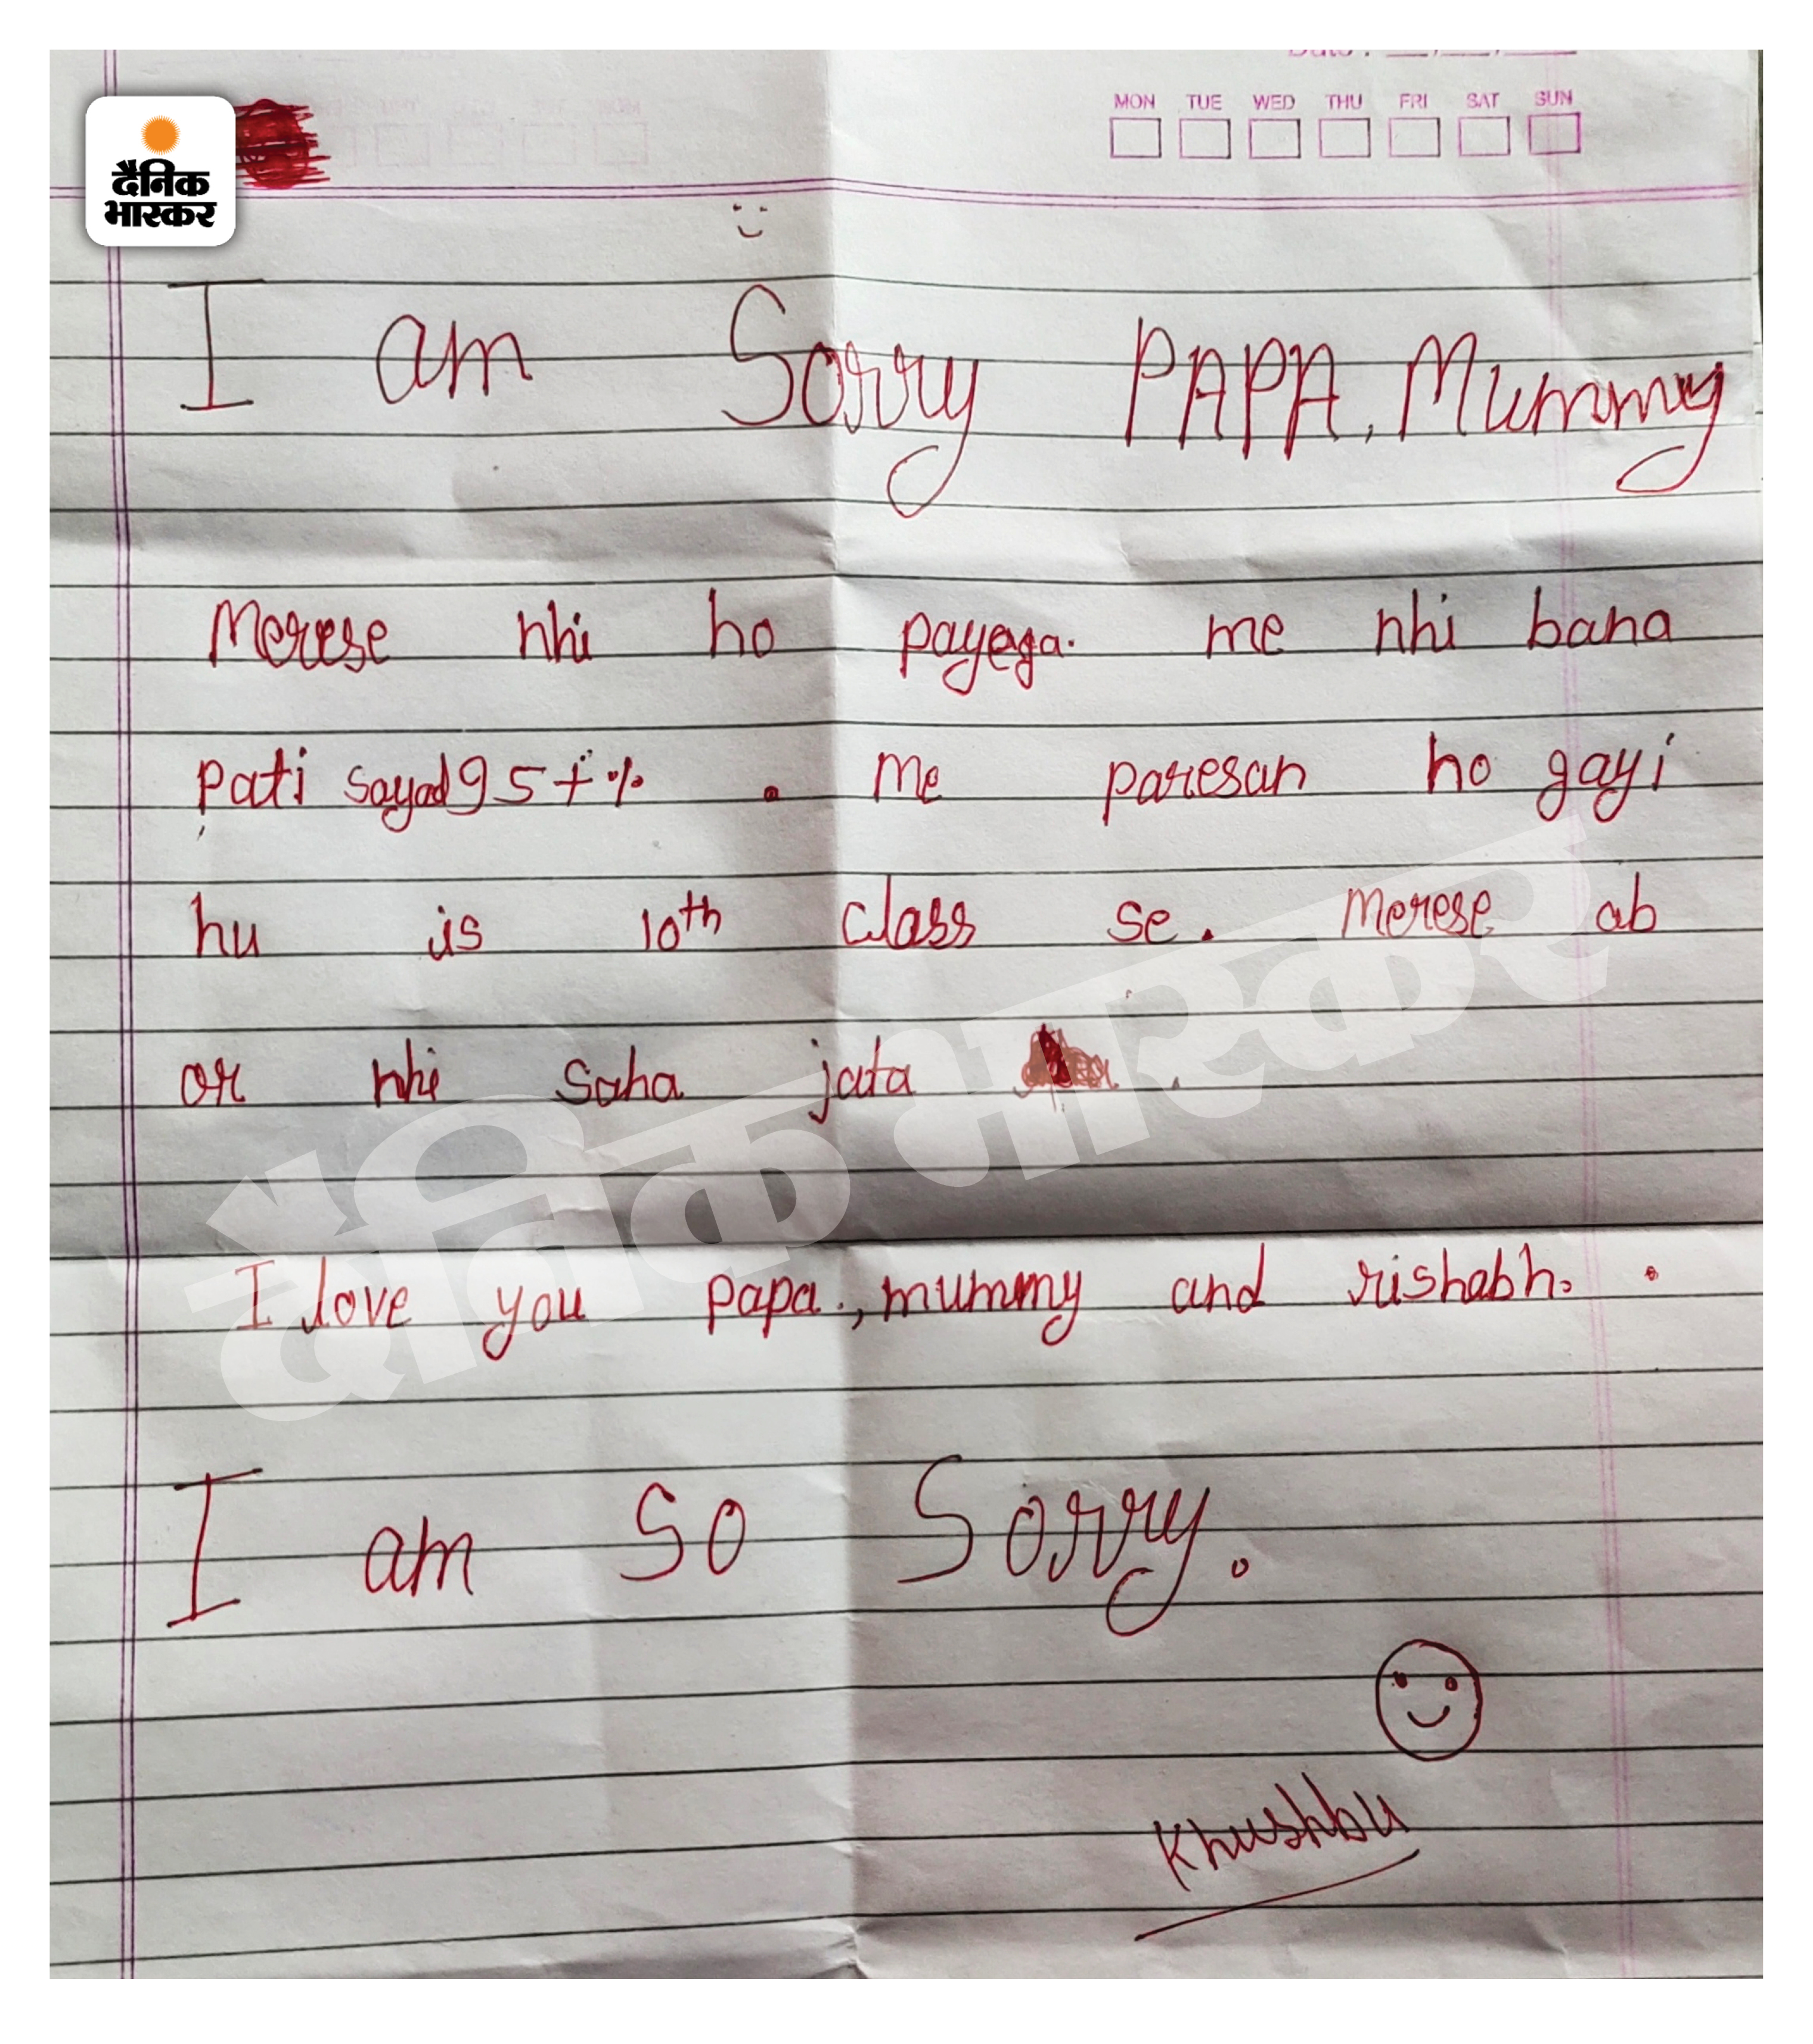 Date : __/__/__
MON TUE WED THU FRI SAT SUN
दैनिक
भास्कर
I am Sorry PAPA, Mummy
Merese nhi ho payega. me nhi bana
pati sayad 95+% . me paresan ho gayi
hu is 10th class se. Merese ab
or nhi saha jata .
दैनिक भास्कर
I love you papa., mummy and rishabh. .
I am So Sorry.
Khushbu